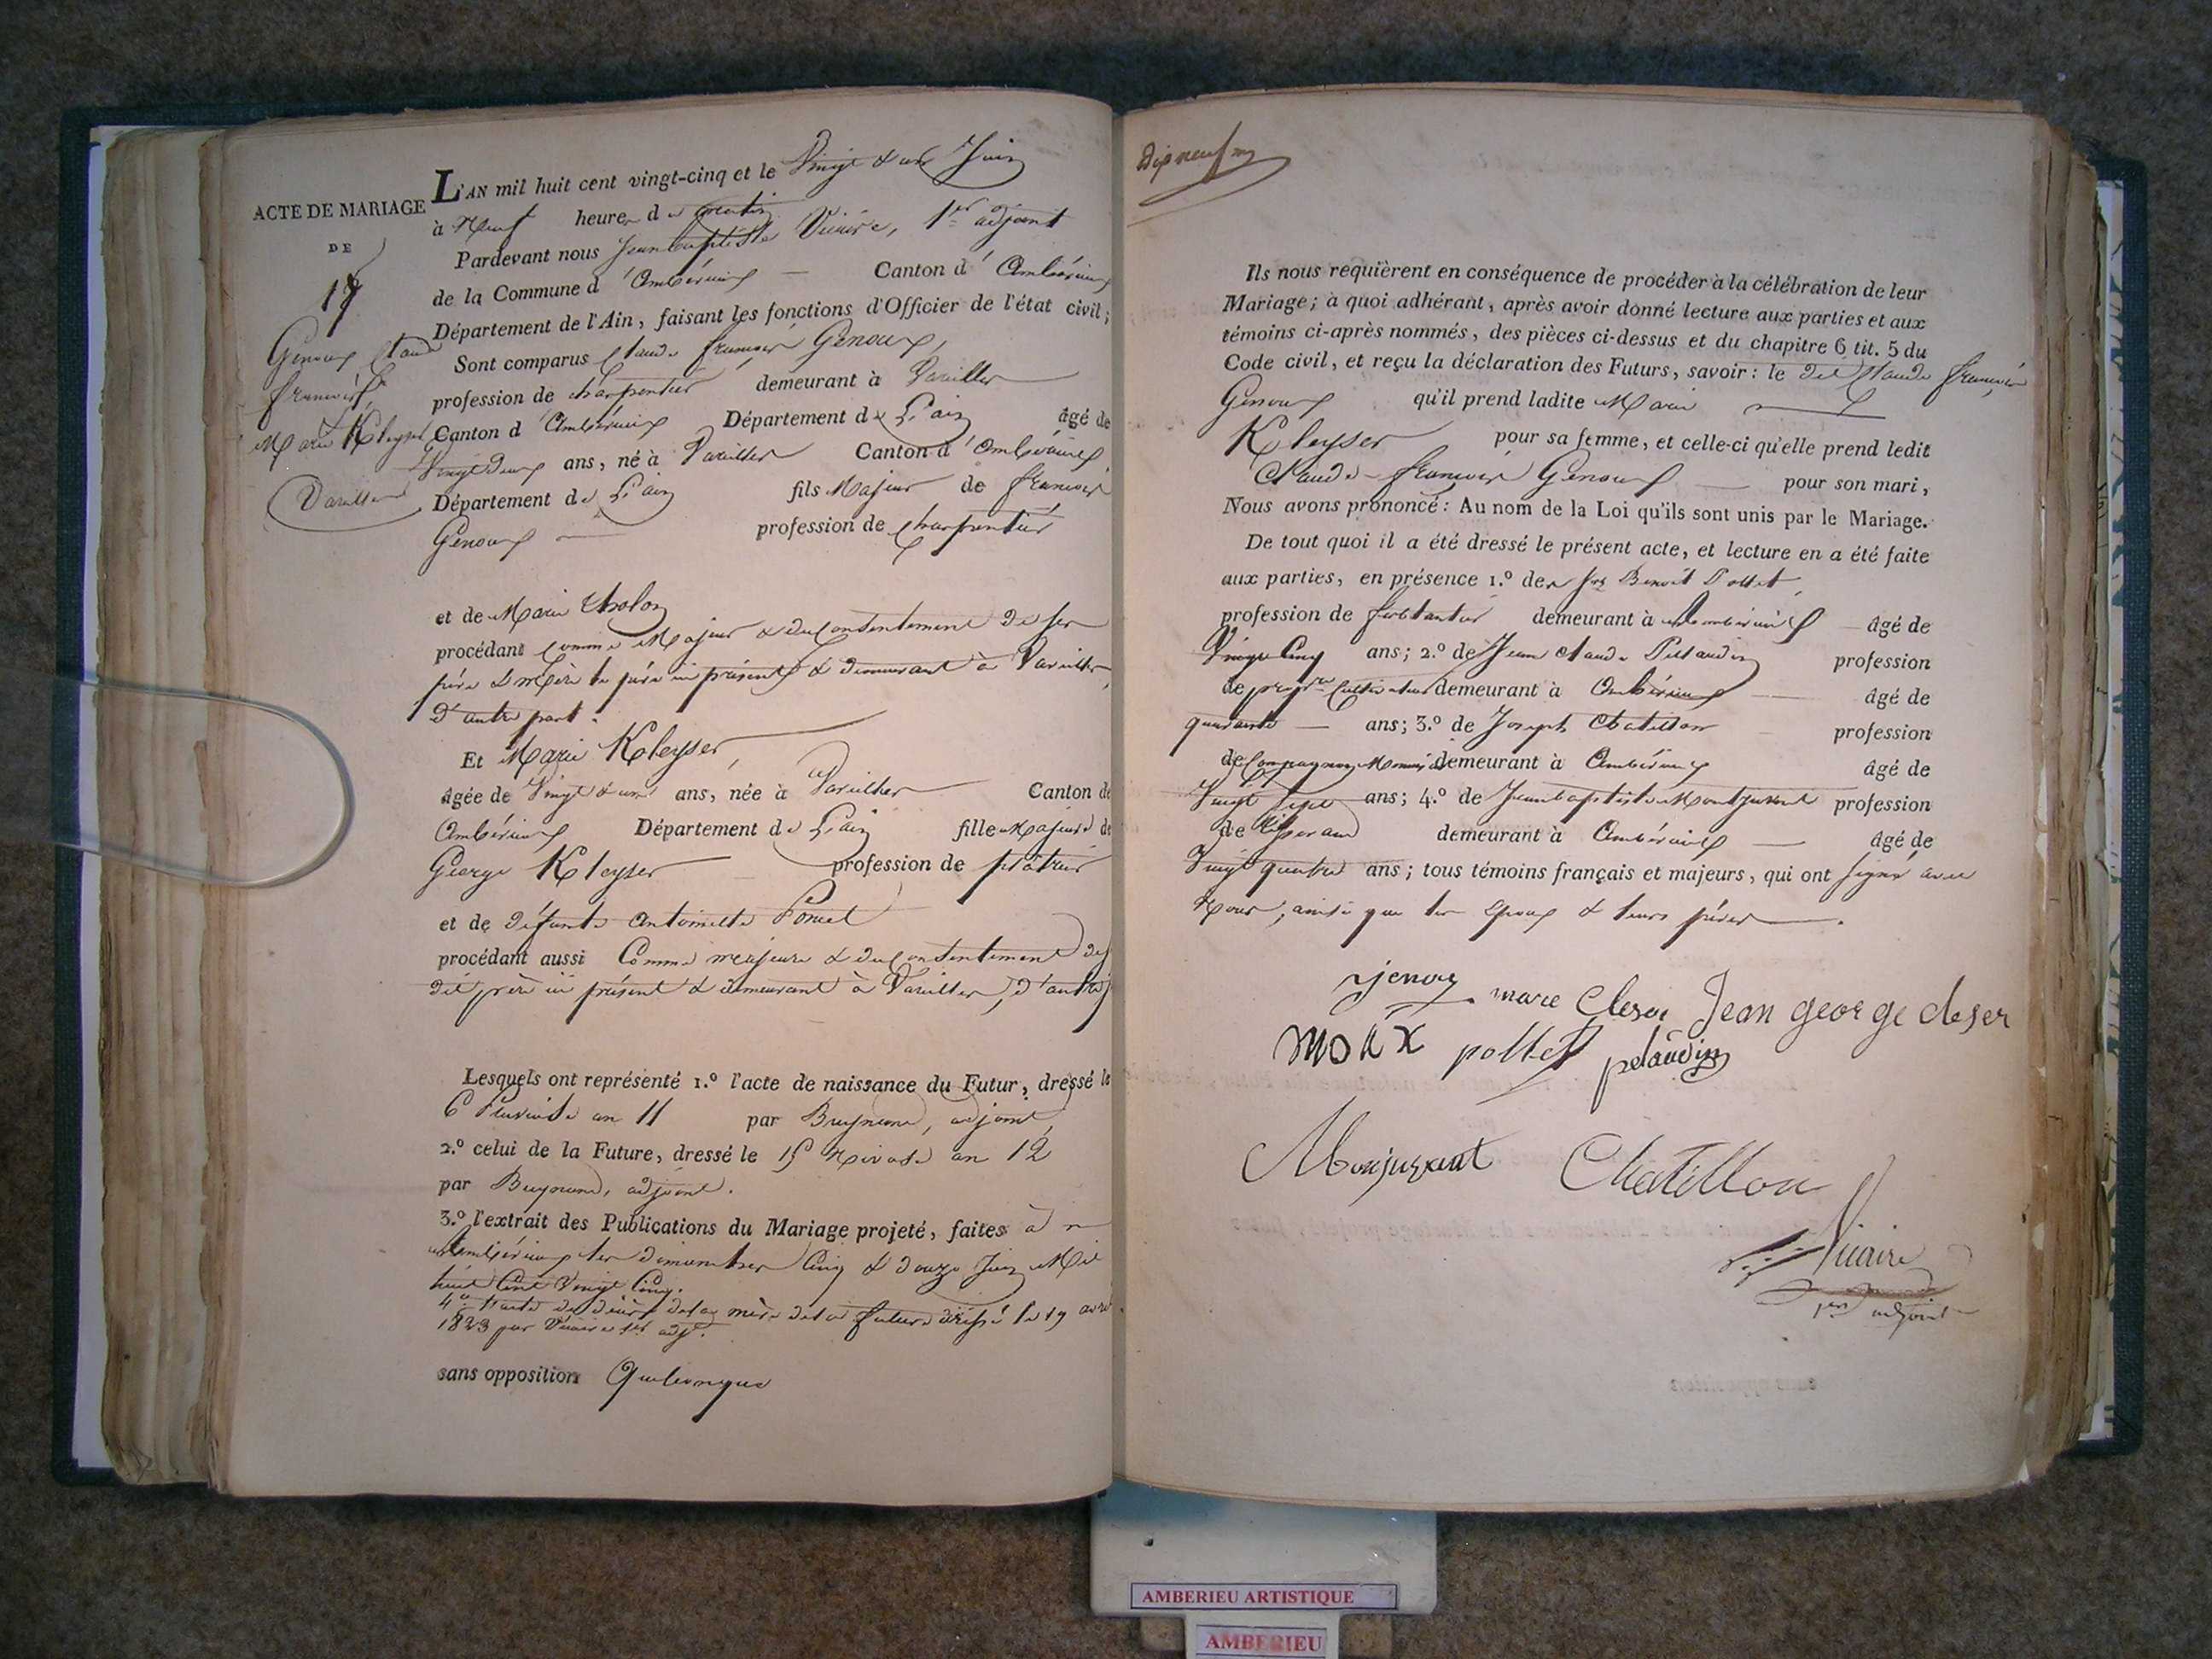 ACTE DE MARIAGE
DE
17
Genoux Claude
François &
Marie Kleyser
Vareilles
L'AN mil huit cent vingt-cinq et le Vingt & un Juin
à Neuf heures du matin
Pardevant nous Jean baptiste Vicaire, 1er adjoint
de la Commune d'Ambérieux — Canton d'Ambérieux
Département de l'Ain, faisant les fonctions d'Officier de l'état civil;
Sont comparus Claude françois Genoux,
profession de charpentier demeurant à Vareilles
Canton d'Ambérieux Département de L'ain âgé de
Vingt deux ans, né à Vareilles Canton d'Ambérieux
Département de L'ain fils Majeur de françois
Genoux — profession de charpentier
et de Marie
procédant comme Majeur & du Consentement de ses
père & mère le père ici présent & demeurant à Vareilles,
d'autre part.
Et Marie Kleyser,
âgée de Vingt & un ans, née à Vareilles Canton de
Ambérieux Département de L'ain fille Majeure de
George Kleyser profession de plâtrier
et de défunte Antoinette
procédant aussi Comme majeure & du Consentement de
dit père ici présent & demeurant à Vareilles, d'autre
Lesquels ont représenté 1.º l'acte de naissance du Futur, dressé le
6 Pluviose an 11 par adjoint,
2.º celui de la Future, dressé le 15 Nivose an 12
par adjoint.
3.º l'extrait des Publications du Mariage projeté, faites à
Ambérieux les dimanches Cinq & douze Juin Mil
huit Cent Vingt Cinq.
4º l'acte de décès de la mère de la future dressé le 19 avril
1823 par Vicaire 1er adjt.
sans opposition Quelconque
dix neuf
Ils nous requièrent en conséquence de procéder à la célébration de leur
Mariage; à quoi adhérant, après avoir donné lecture aux parties et aux
témoins ci-après nommés, des pièces ci-dessus et du chapitre 6 tit. 5 du
Code civil, et reçu la déclaration des Futurs, savoir: le dit Claude françois
Genoux qu'il prend ladite Marie
Kleyser pour sa femme, et celle-ci qu'elle prend ledit
Claude-françois Genoux — pour son mari,
Nous avons prononcé: Au nom de la Loi qu'ils sont unis par le Mariage.
De tout quoi il a été dressé le présent acte, et lecture en a été faite
aux parties, en présence 1.º des Srs Benoit Pollet,
profession de ferblantier demeurant à Ambérieux — âgé de
Vingt Cinq ans; 2.º de Jean Claude Pelaudin profession
de propre Cultivateur demeurant à Ambérieux — âgé de
quarante — ans; 3.º de Joseph Chatillon profession
de Compagnon demeurant à Ambérieux âgé de
Vingt Sept ans; 4.º de Jean baptiste Montjuvent profession
de tisserand demeurant à Ambérieux — âgé de
Vingt quatre ans; tous témoins français et majeurs, qui ont signé avec
Nous, ainsi que les Epoux & leurs pères.
marie Jean george cleser
pollet pelaudin
Monjuvent Chatillon
Vicaire
1er adjoint
AMBERIEU ARTISTIQUE
AMBERIEU